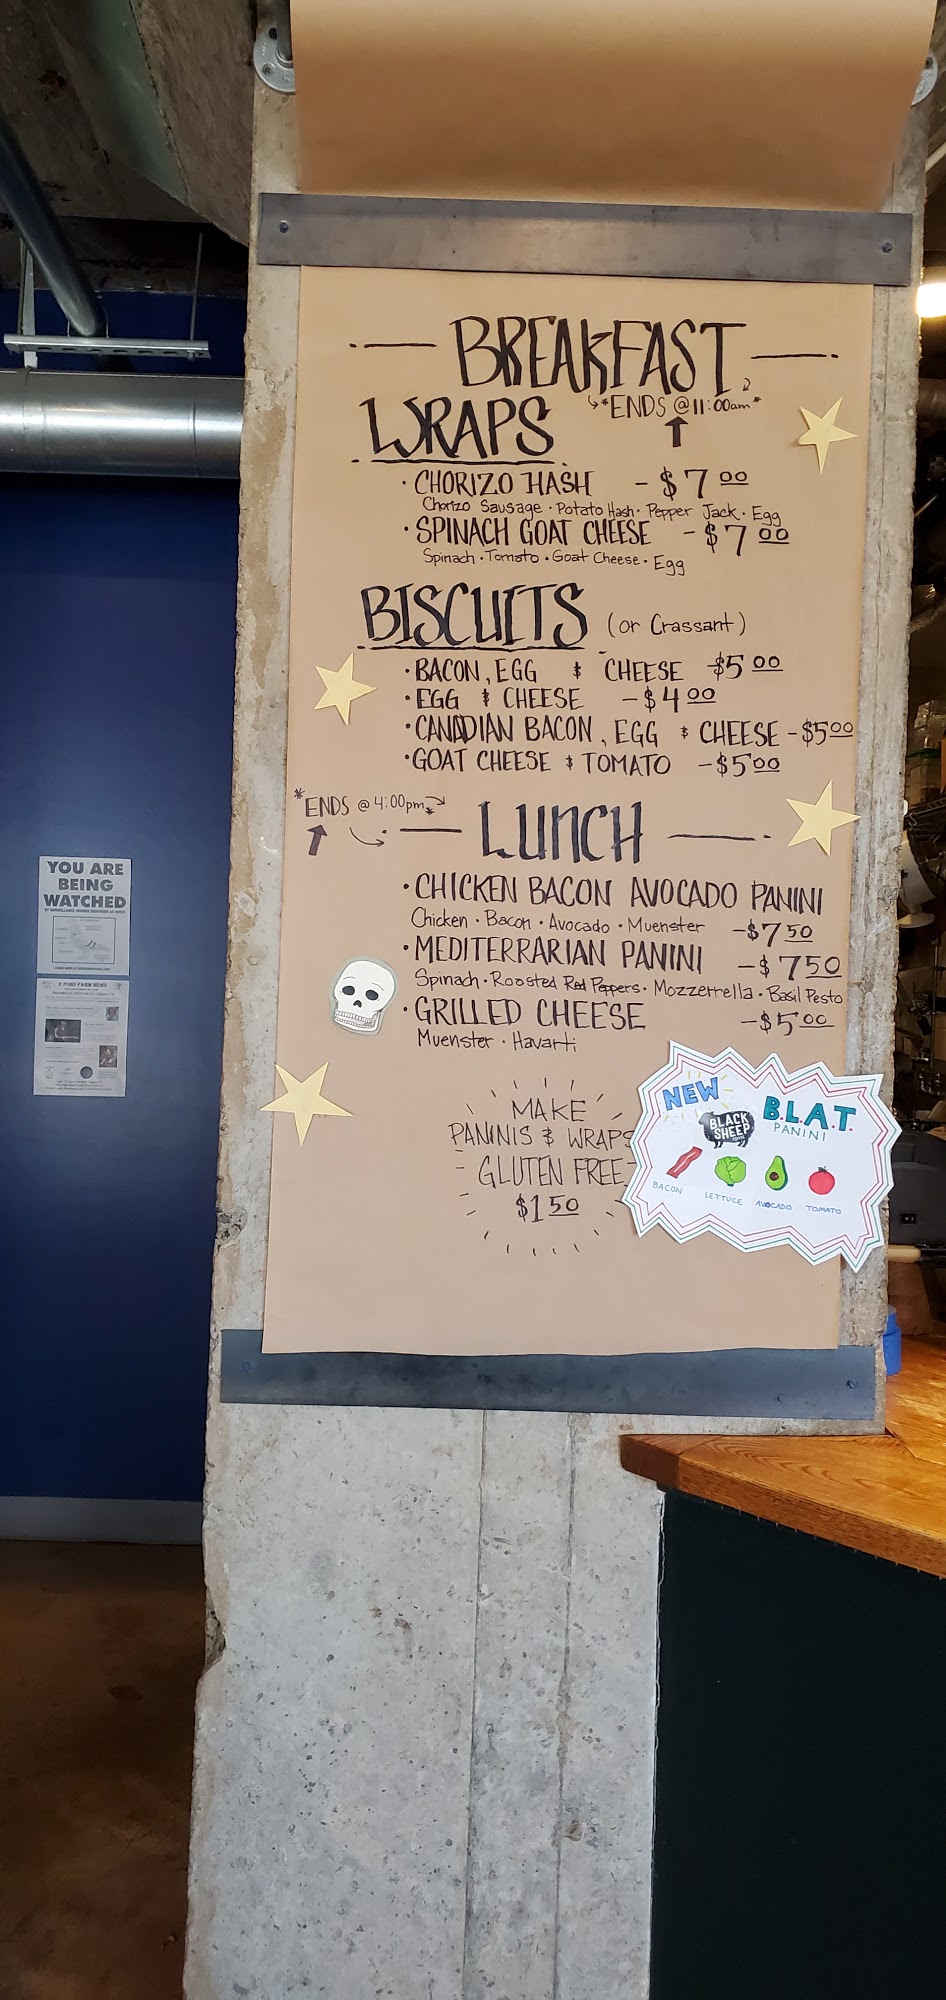 BREAKFAST
*ENDS @ 11:00am*
WRAPS
· CHORIZO HASH - $7 00
Chorizo Sausage · Potato Hash · Pepper Jack · Egg
· SPINACH GOAT CHEESE - $7 00
Spinach · Tomato · Goat Cheese · Egg
BISCUITS (or Crassant)
· BACON, EGG & CHEESE -$5 00
· EGG & CHEESE -$4 00
· CANADIAN BACON, EGG & CHEESE -$5 00
· GOAT CHEESE & TOMATO -$5 00
*ENDS @ 4:00pm*
LUNCH
· CHICKEN BACON AVOCADO PANINI
Chicken · Bacon · Avocado · Muenster -$7 50
· MEDITERRARIAN PANINI -$7 50
Spinach · Roosted Red Peppers · Mozzerrella · Basil Pesto
· GRILLED CHEESE -$5 00
Muenster · Havarti
MAKE
PANINIS & WRAPS
GLUTEN FREE
$1 50
NEW
BLACK
SHEEP
B.L.A.T.
PANINI
BACON
LETTUCE
AVOCADO
TOMATO
YOU ARE
BEING
WATCHED